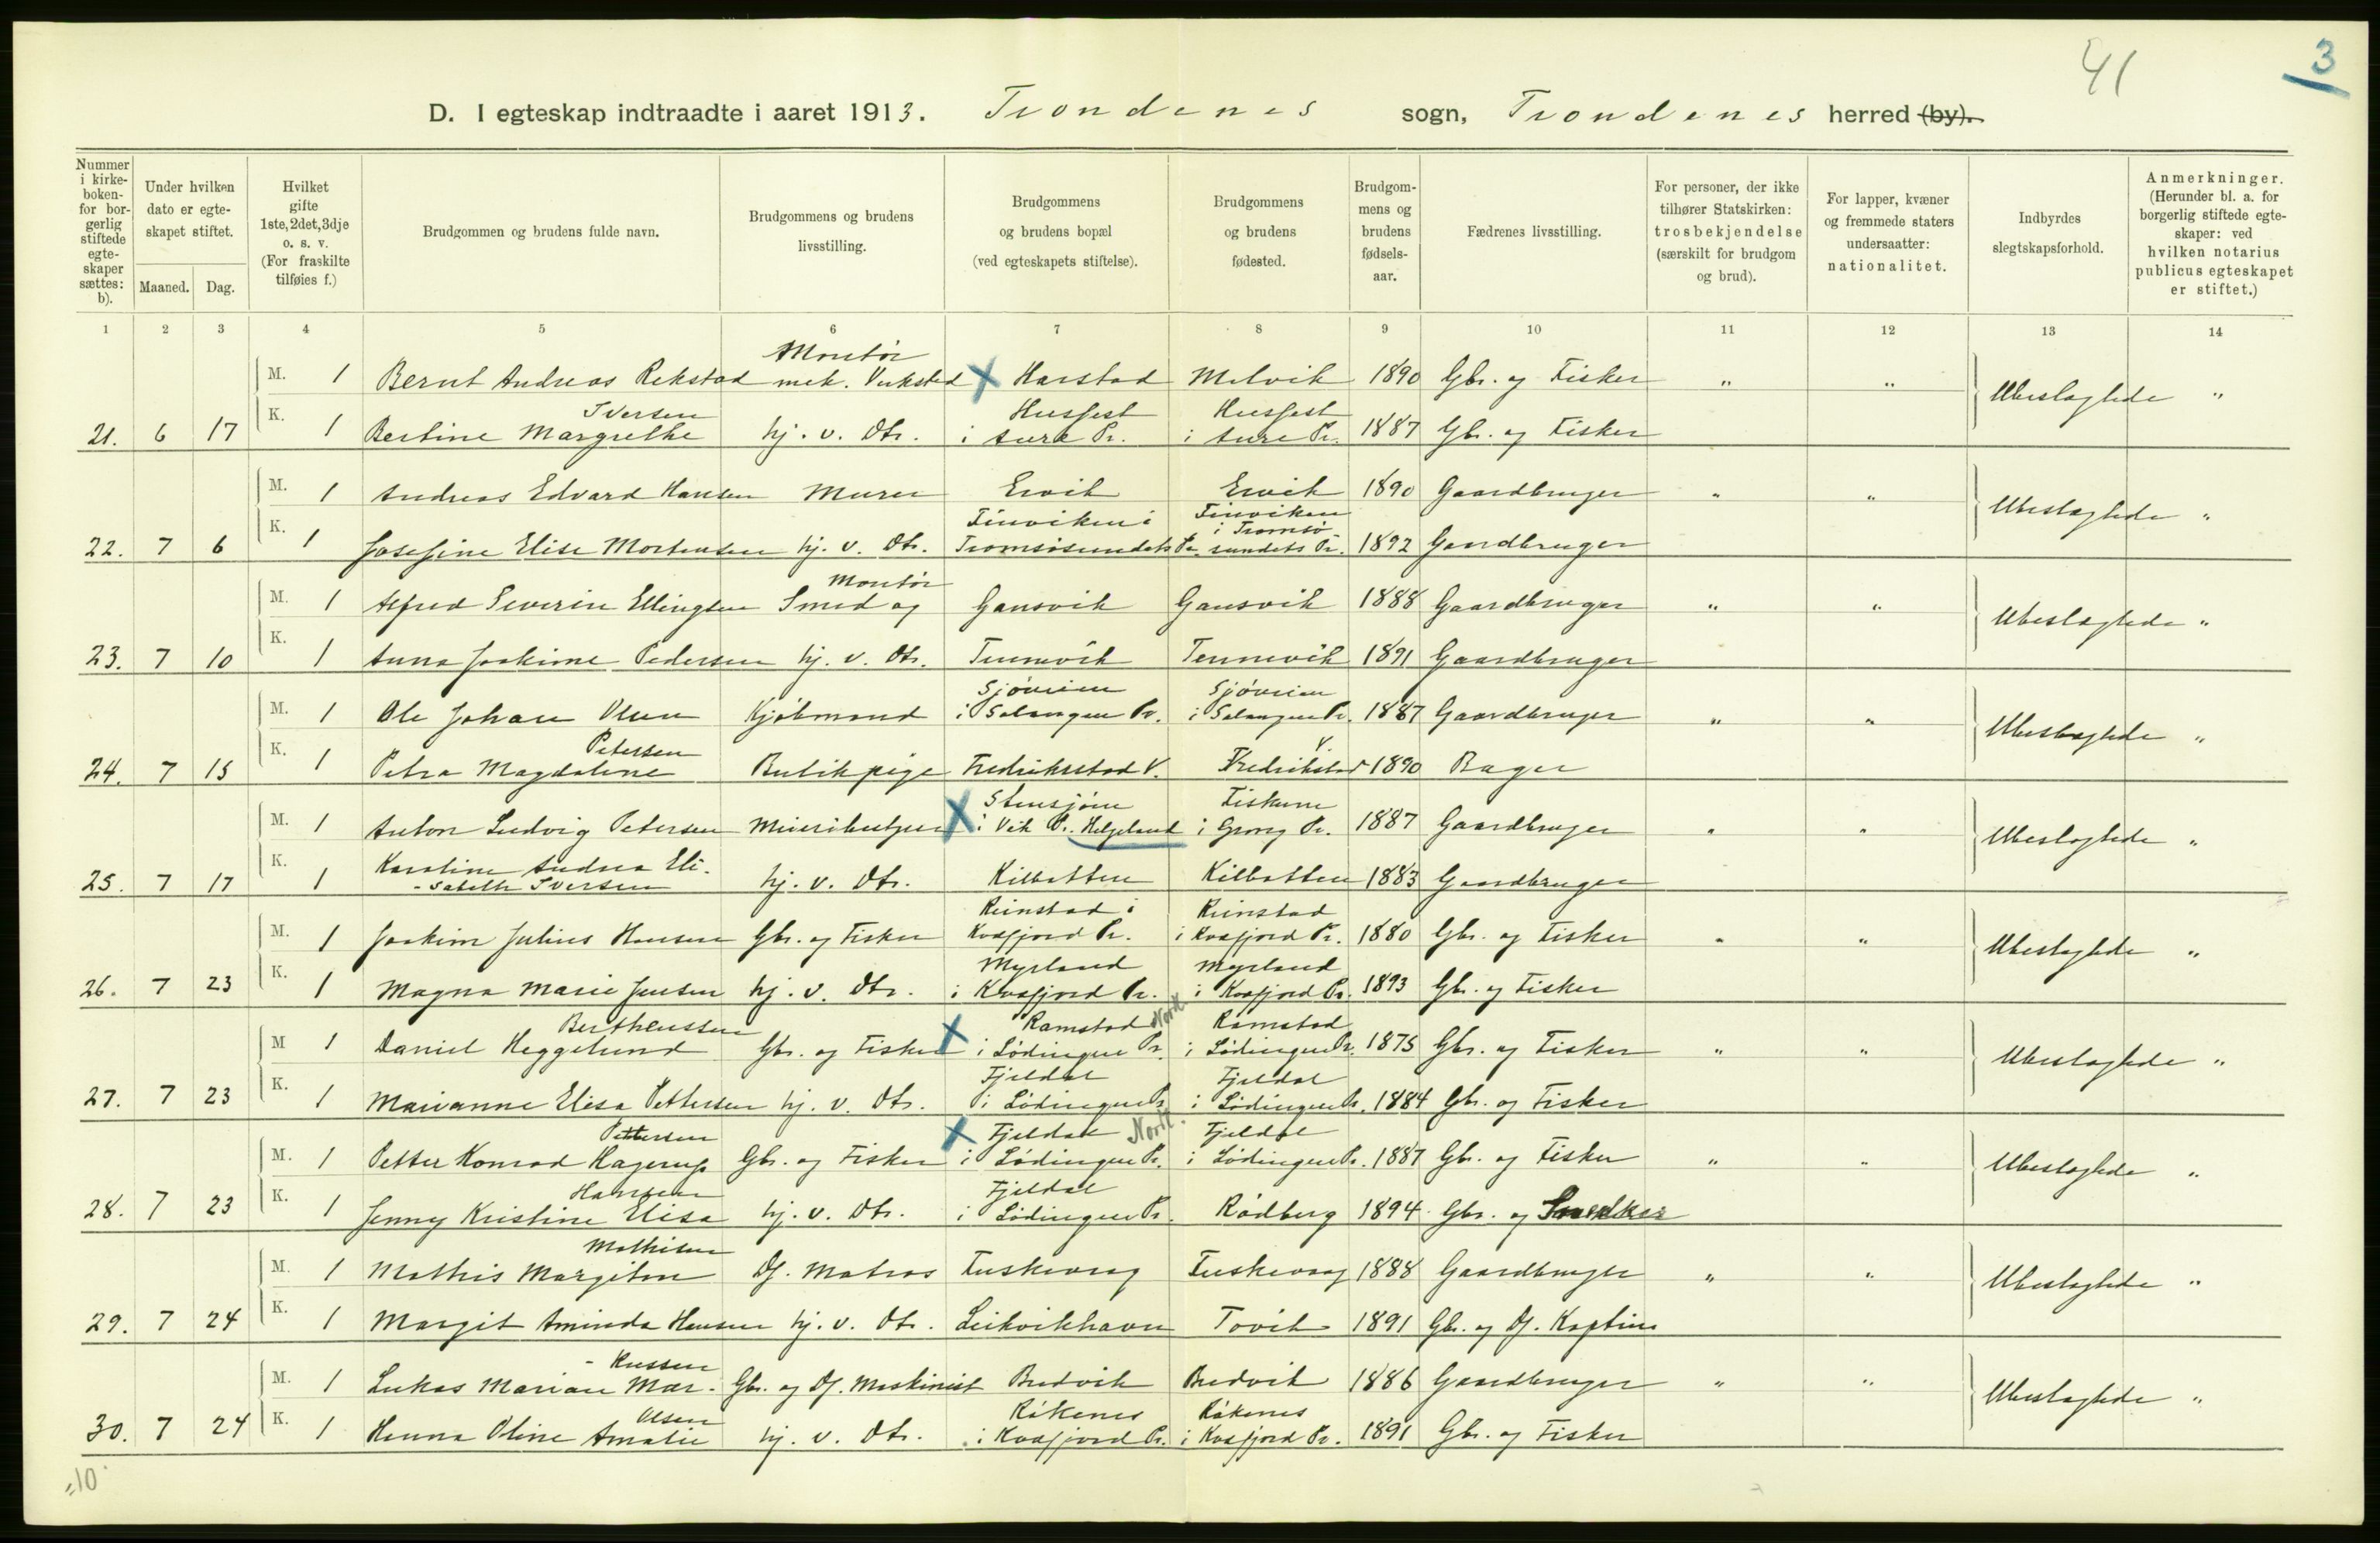 41
3
D. I egteskap indtraadte i aaret 1913. Trondenes sogn, Trondenes herred (by).
Nummer i kirkeboken - for borgerlig stiftede egteskaper sættes: b).
Under hvilken dato er egteskapet stiftet.
Maaned. Dag.
Hvilket gifte 1ste, 2det, 3dje o. s. v. (For fraskilte tilføies f.)
Brudgommen og brudens fulde navn.
Brudgommens og brudens livsstilling.
Brudgommens og brudens bopæl (ved egteskapets stiftelse).
Brudgommens og brudens fødested.
Brudgommens og brudens fødselsaar.
Fædrenes livsstilling.
For personer, der ikke tilhører Statskirken: trosbekjendelse (særskilt for brudgom og brud).
For lapper, kvæner og fremmede staters undersaatter: nationalitet.
Indbyrdes slegtskapsforhold.
Anmerkninger. (Herunder bl. a. for borgerlig stiftede egteskaper: ved hvilken notarius publicus egteskapet er stiftet.)
1 2 3 4 5 6 7 8 9 10 11 12 13 14
Montør
M. 1 Bernt Andreas Rekstad mek. Verksted X Harstad Melvik 1890 Gbr. og Fisker " " Ubeslægtede "
Iversen Husfest Husfest
21. 6 17 K. 1 Bertine Margrethe hj. v. Dtr. i Aure Pr. i Aure Pr. 1887 Gbr. og Fisker
M. 1 Andreas Edvard Hansen Murer Ervik Ervik 1890 Gaardbruger " " Ubeslægtede "
Finviken i Finviken i Tromsø
22. 7 6 K. 1 Josefine Elise Mortensen hj. v. Dtr. Tromsøsundets Pr. sundets Pr. 1892 Gaardbruger
Montør
M. 1 Alfred Severin Ellingsen Smed og Gansvik Gausvik 1888 Gaardbruger " " Ubeslægtede "
23. 7 10 K. 1 Anna Joakime Pedersen hj. v. Dtr. Tennevik Tennevik 1891 Gaardbruger
Sjøveien Sjøveien
M. 1 Ole Johan Olsen Kjøbmand i Salangen Pr. i Salangen Pr. 1887 Gaardbruger " " Ubeslægtede "
Petersen V.
24. 7 15 K. 1 Petra Magdalene Butikpige Fredriksstad V. Fredrikstad 1890 Bager
Stensjøen Fiskum
M. 1 Anton Ludvig Petersen Meieribestyrer X i Vik Pr. Helgeland i Grong Pr. 1887 Gaardbruger " " Ubeslægtede "
Karoline Andrea Eli-
25. 7 17 K. 1 -sabeth Iversen hj. v. Dtr. Kilbotten Kilbotten 1883 Gaardbruger
Reinstad i Reinstad
M. 1 Joakim Julius Hansen Gbr. og Fisker Kvæfjord Pr. i Kvæfjord Pr. 1880 Gbr. og Fisker " " Ubeslægtede "
Myrland Myrland
26. 7 23 K. 1 Magna Marie Jensen hj. v. Dtr. i Kvæfjord Pr. i Kvæfjord Pr. 1893 Gbr. og Fisker
Bertheussen Ramstad Nordl. Ramstad
M 1 Daniel Heggelund Gbr. og Fisker X i Lødingen Pr. i Lødingen Pr. 1875 Gbr. og Fisker " " Ubeslægtede "
Fjeldal Fjeldal
27. 7 23 K. 1 Marianne Elisa Pettersen hj. v. Dtr. i Lødingen Pr. i Lødingen Pr. 1884 Gbr. og Fisker
Pettersen X Fjeldal Nordl. Fjeldal
M. 1 Petter Konrad Hagerup Gbr. og Fisker i Lødingen Pr. i Lødingen Pr. 1887 Gbr. og Fisker " " Ubeslægtede "
Hansen Fjeldal
28. 7 23 K. 1 Jenny Kristine Elisa hj. v. Dtr. i Lødingen Pr. Rødberg 1894 Gbr. og Snedker
Mathisen
M. 1 Mathis Margiton Df. Matros Fuskevaag Fuskevaag 1888 Gaardbruger " " Ubeslægtede "
29. 7 24 K. 1 Margit Aminda Hansen hj. v. Dtr. Leikvikhavn Tovik 1891 Gbr. og Df. Kaptein
-kussen
M. 1 Lukas Marian Mar- Gbr. og Df. Maskinist Bredvik Bredvik 1886 Gaardbruger " " Ubeslægtede "
Olsen Røkenes Røkenes
30. 7 24 K. 1 Hanna Oline Amalie hj. v. Dtr. i Kvæfjord Pr. i Kvæfjord Pr. 1891 Gbr. og Fisker
10